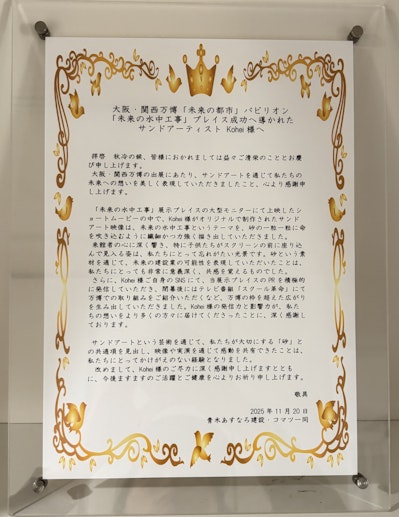 大阪・関西万博「未来の都市」パビリオン
「未来の水中工事」プレイス成功へ導かれた
サンドアーティスト Kohei 様へ
拝啓　秋冷の候、皆様におかれましては益々ご清栄のこととお慶
び申し上げます。
大阪・関西万博の出展にあたり、サンドアートを通じて私たちの
未来への想いを美しく表現していただきましたこと、心より感謝申
し上げます。
「未来の水中工事」展示プレイスの大型モニターにて上映したシ
ョートムービーの中で、Kohei 様がオリジナルで制作されたサンド
アート映像は、未来の水中工事というテーマを、砂の一粒一粒に命
を吹き込むように繊細かつ力強く描き出していただきました。
来館者の心に深く響き、特に子供たちがスクリーンの前に座り込
んで見入る姿は、私たちにとって忘れがたい光景です。砂という素
材を通じて、未来の建設業の可能性を表現していただいたことは、
私たちにとっても非常に意義深く、共感を覚えるものでした。
さらに、Kohei 様ご自身の SNS にて、当展示プレイスの PR を積極的
に発信していただき、閉幕後にはテレビ番組「スクール革命」にて
万博での取り組みをご紹介いただくなど、万博の枠を超えた広がり
を生み出していただきました。Kohei 様の発信力と影響力が、私た
ちの想いをより多くの方々に届けてくださったことに、深く感謝し
ております。
サンドアートという芸術を通じて、私たちが大切にする「砂」と
の共通項を見出し、映像や実演を通じて感動を共有できたことは、
私たちにとってかけがえのない経験となりました。
改めまして、Kohei 様のご尽力に深く感謝申し上げますととも
に、今後ますますのご活躍とご健康を心よりお祈り申し上げます。
敬具
2025 年 11 月 20 日
青木あすなろ建設・コマツ一同